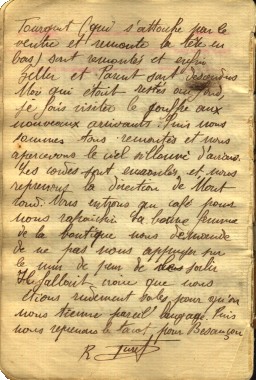 Tourgout (qui s'attache par le
ventre et remonte la tête en
bas) sont remontés et enfin
Zeller et Parent sont descendus
Moi qui étais resté au fond,
je fais visiter le gouffre aux
nouveaux arrivants. Puis nous
sommes tous remontés et nous
apercevons le ciel sillonné d'avions.
Les cordes sont enroulées, et nous
reprenons la direction de Mont
rond. Nous entrons au café pour
nous rafraîchir. La bonne femme
de la boutique nous demande
de ne pas nous appuyer sur
le mur de peur de le salir
Il fallait croire que nous
étions rudement sales pour qu'on
nous tienne pareil langage. Puis
nous reprenons le tacot pour Besançon
R.